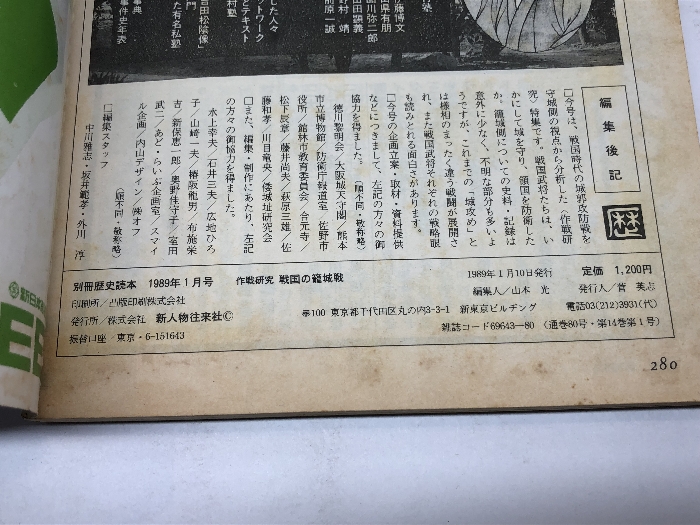 編集後記
歴
□今号は、戦国時代の城郭攻防戦を
守城側の視点から分析した〈作戦研
究〉特集です。戦国武将たちは、い
かにして城を守り、領国を防衛した
か。籠城側についての史料・記録は
意外に少なく、不明な部分も多いよ
うですが、これまでの「城攻め」と
は様相のまったく違う戦闘が展開さ
れ、また戦国武将それぞれの戦略眼
も読みとれる面白さがあります。
□今号の企画立案・取材・資料提供
などにつきまして、左記の方々の御
協力を得ました。（順不同・敬称略）
徳川黎明会／大阪城天守閣／熊本
市立博物館／防衛庁報道室 佐野市
役所／館林市教育委員会／合元寺／
松下辰章／藤井尚夫／萩原三雄／佐
藤和孝／川目竜央／倭城址研究会
□また、編集・制作にあたり、左記
の方々の御協力を得ました。
水上幸夫／石井三夫／広地ひろ
子／山崎一夫／椿阪龍男／布施栄
吉／新保恵一郎／奥野佳守子／室田
武二／あど・らいぶ企画室／スマイ
ル企画／内山デザイン／㈱オフ
（順不同・敬称略）
□編集スタッフ
中川雅志・坂井範孝・外川 淳
伊藤博文
山県有朋
品川弥二郎
山田顕義
野村 靖
前原一誠
した人々
ットワーク
とテキスト
村塾
吉田松陰像」
門
た有名私塾
事典
事件史年表
別冊歴史読本 1989年1月号 作戦研究 戦国の籠城戦
1989年1月10日発行 定価 1,200円
印刷所／凸版印刷株式会社
編集人／山本 光 発行人／菅 英志
発行所／株式会社 新人物往来社©
〒100 東京都千代田区丸の内3-3-1 新東京ビルヂング 電話03(212)3931(代)
振替口座／東京・6-151643
雑誌コード69643—80 （通巻80号・第14巻第1号）
280